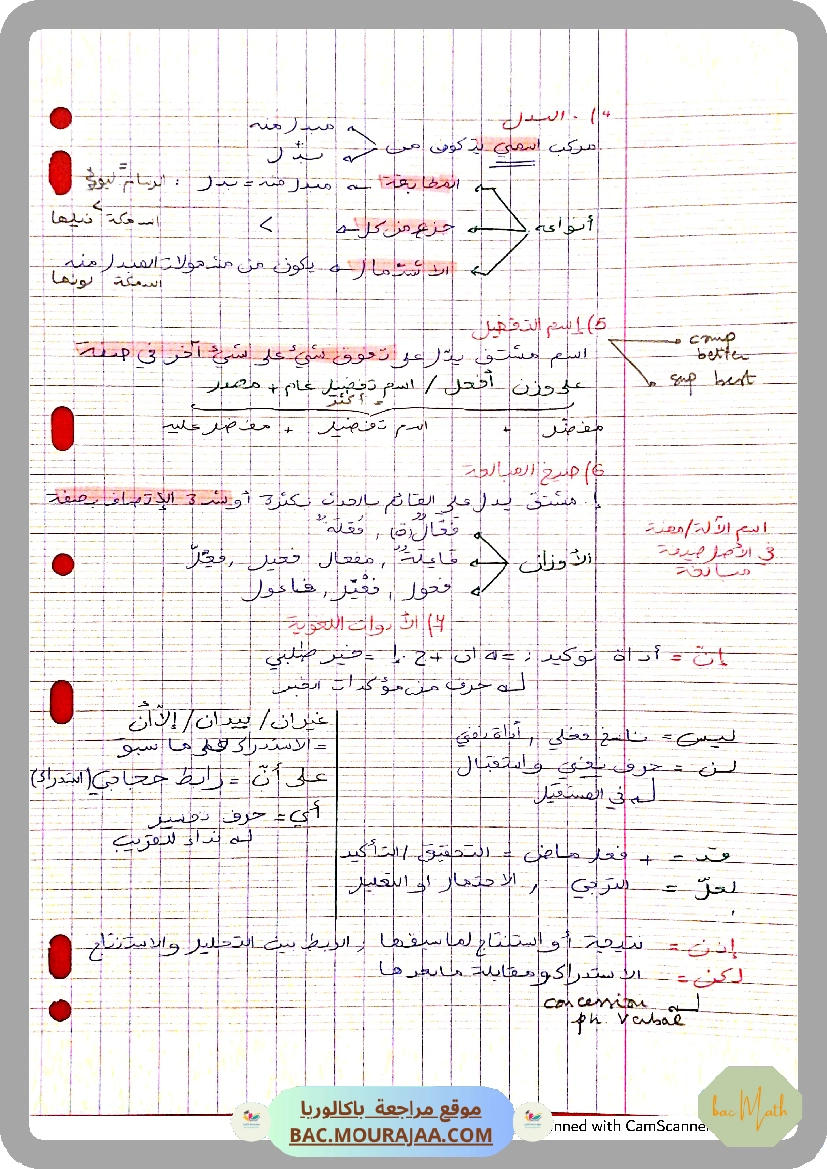 4) البدل
مركب اسمي يتكون من
مبدل منه
بدل
أنواعه
المطابقة
مبدل منه = بدل :
جزء من كل
>
السمكة ذيلها
الاشتمال
يكون من مشمولات المبدل منه
السمكة لونها
5) إسم التفضيل
comp
better
sup best
اسم مشتق يدل على تفوق شيء على شيء آخر في صفة
على وزن أفعل / اسم تفضيل عام + مصدر
= أكثر
مفضل + اسم تفضيل + مفضل عليه
6) صيغ المبالغة
إ. مشتق يدل على القائم بالحدث بكثرة أو شدة الإتصاف بصفة
اسم الآلة/مهنة
في الأصل صيغة
مبالغة
الأوزان
فعّال (ة) , فُعَلَة
فاعلة , مفعال فعيل , فعل
فعول , فعّيل , فاعول
7) الأدوات اللغوية
إنّ = أداة توكيد : = ان + ج. إ = خبر طلبي
حرف من مؤكدات الخبر
ليس = ناسخ فعلي , أداة نفي
لن = حرف نفي واستقبال
في المستقبل
غير أن / بيد أن / إلّا أن
= الاستدراك على ما سبق
على أنّ = رابط حجاجي (استدراك)
أي = حرف تفسير
نداء للقريب
قد = + فعل ماض = التحقيق / التأكيد
لعلّ = الترجي , الاحتمال او التعليل
إذن = نتيجة أو استنتاج لما سبقها , الربط بين التحليل والاستنتاج
لكن = الاستدراك ومقابلة ما بعدها
concession
ph. Verbale
موقع مراجعة باكالوريا
BAC.MOURAJAA.COM
nned with CamScanner
bac Math